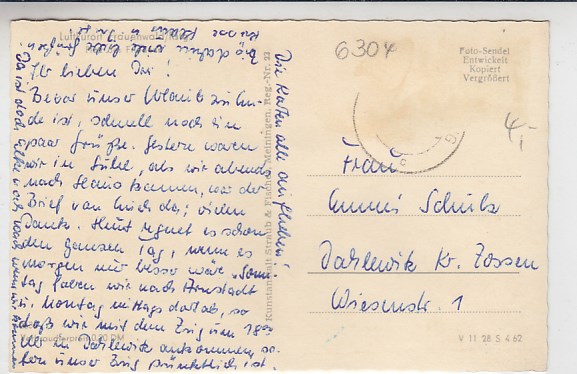 Luftkurort Frauenwald/Thür.
Ihr lieben Drei!
Bevor unser Urlaub zu En-
de ist, schnell noch ein
paar Grüße. Gestern waren
wir in Suhl, als wir abends
nach Hause kamen, war der
Brief von Euch da; vielen
Dank. Heut regnet es schon
den ganzen Tag, wenn es
morgen nur besser wäre. Sonn-
tag fahren wir nach Arnstadt
u. Montag mittags dort ab, so
daß wir mit dem Zug um 18
Uhr in Dahlewitz ankommen, so-
fern unser Zug pünktlich ist.
Die Karten alle aufheben!
Kunstanstalt Straub & Fischer, Meiningen, Reg.-Nr.
Verbraucherpreis 0,20 DM
6304
Foto-Sendel
Entwickelt
Kopiert
Vergrößert
4,-
Frau
Schulz
Dahlewitz Kr. Zossen
Wiesenstr. 1
V 11 28 S 4 62